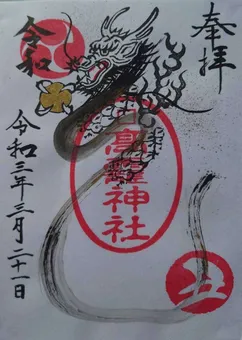 奉拝
令和
高龗神社
令和三年三月二十一日
丑